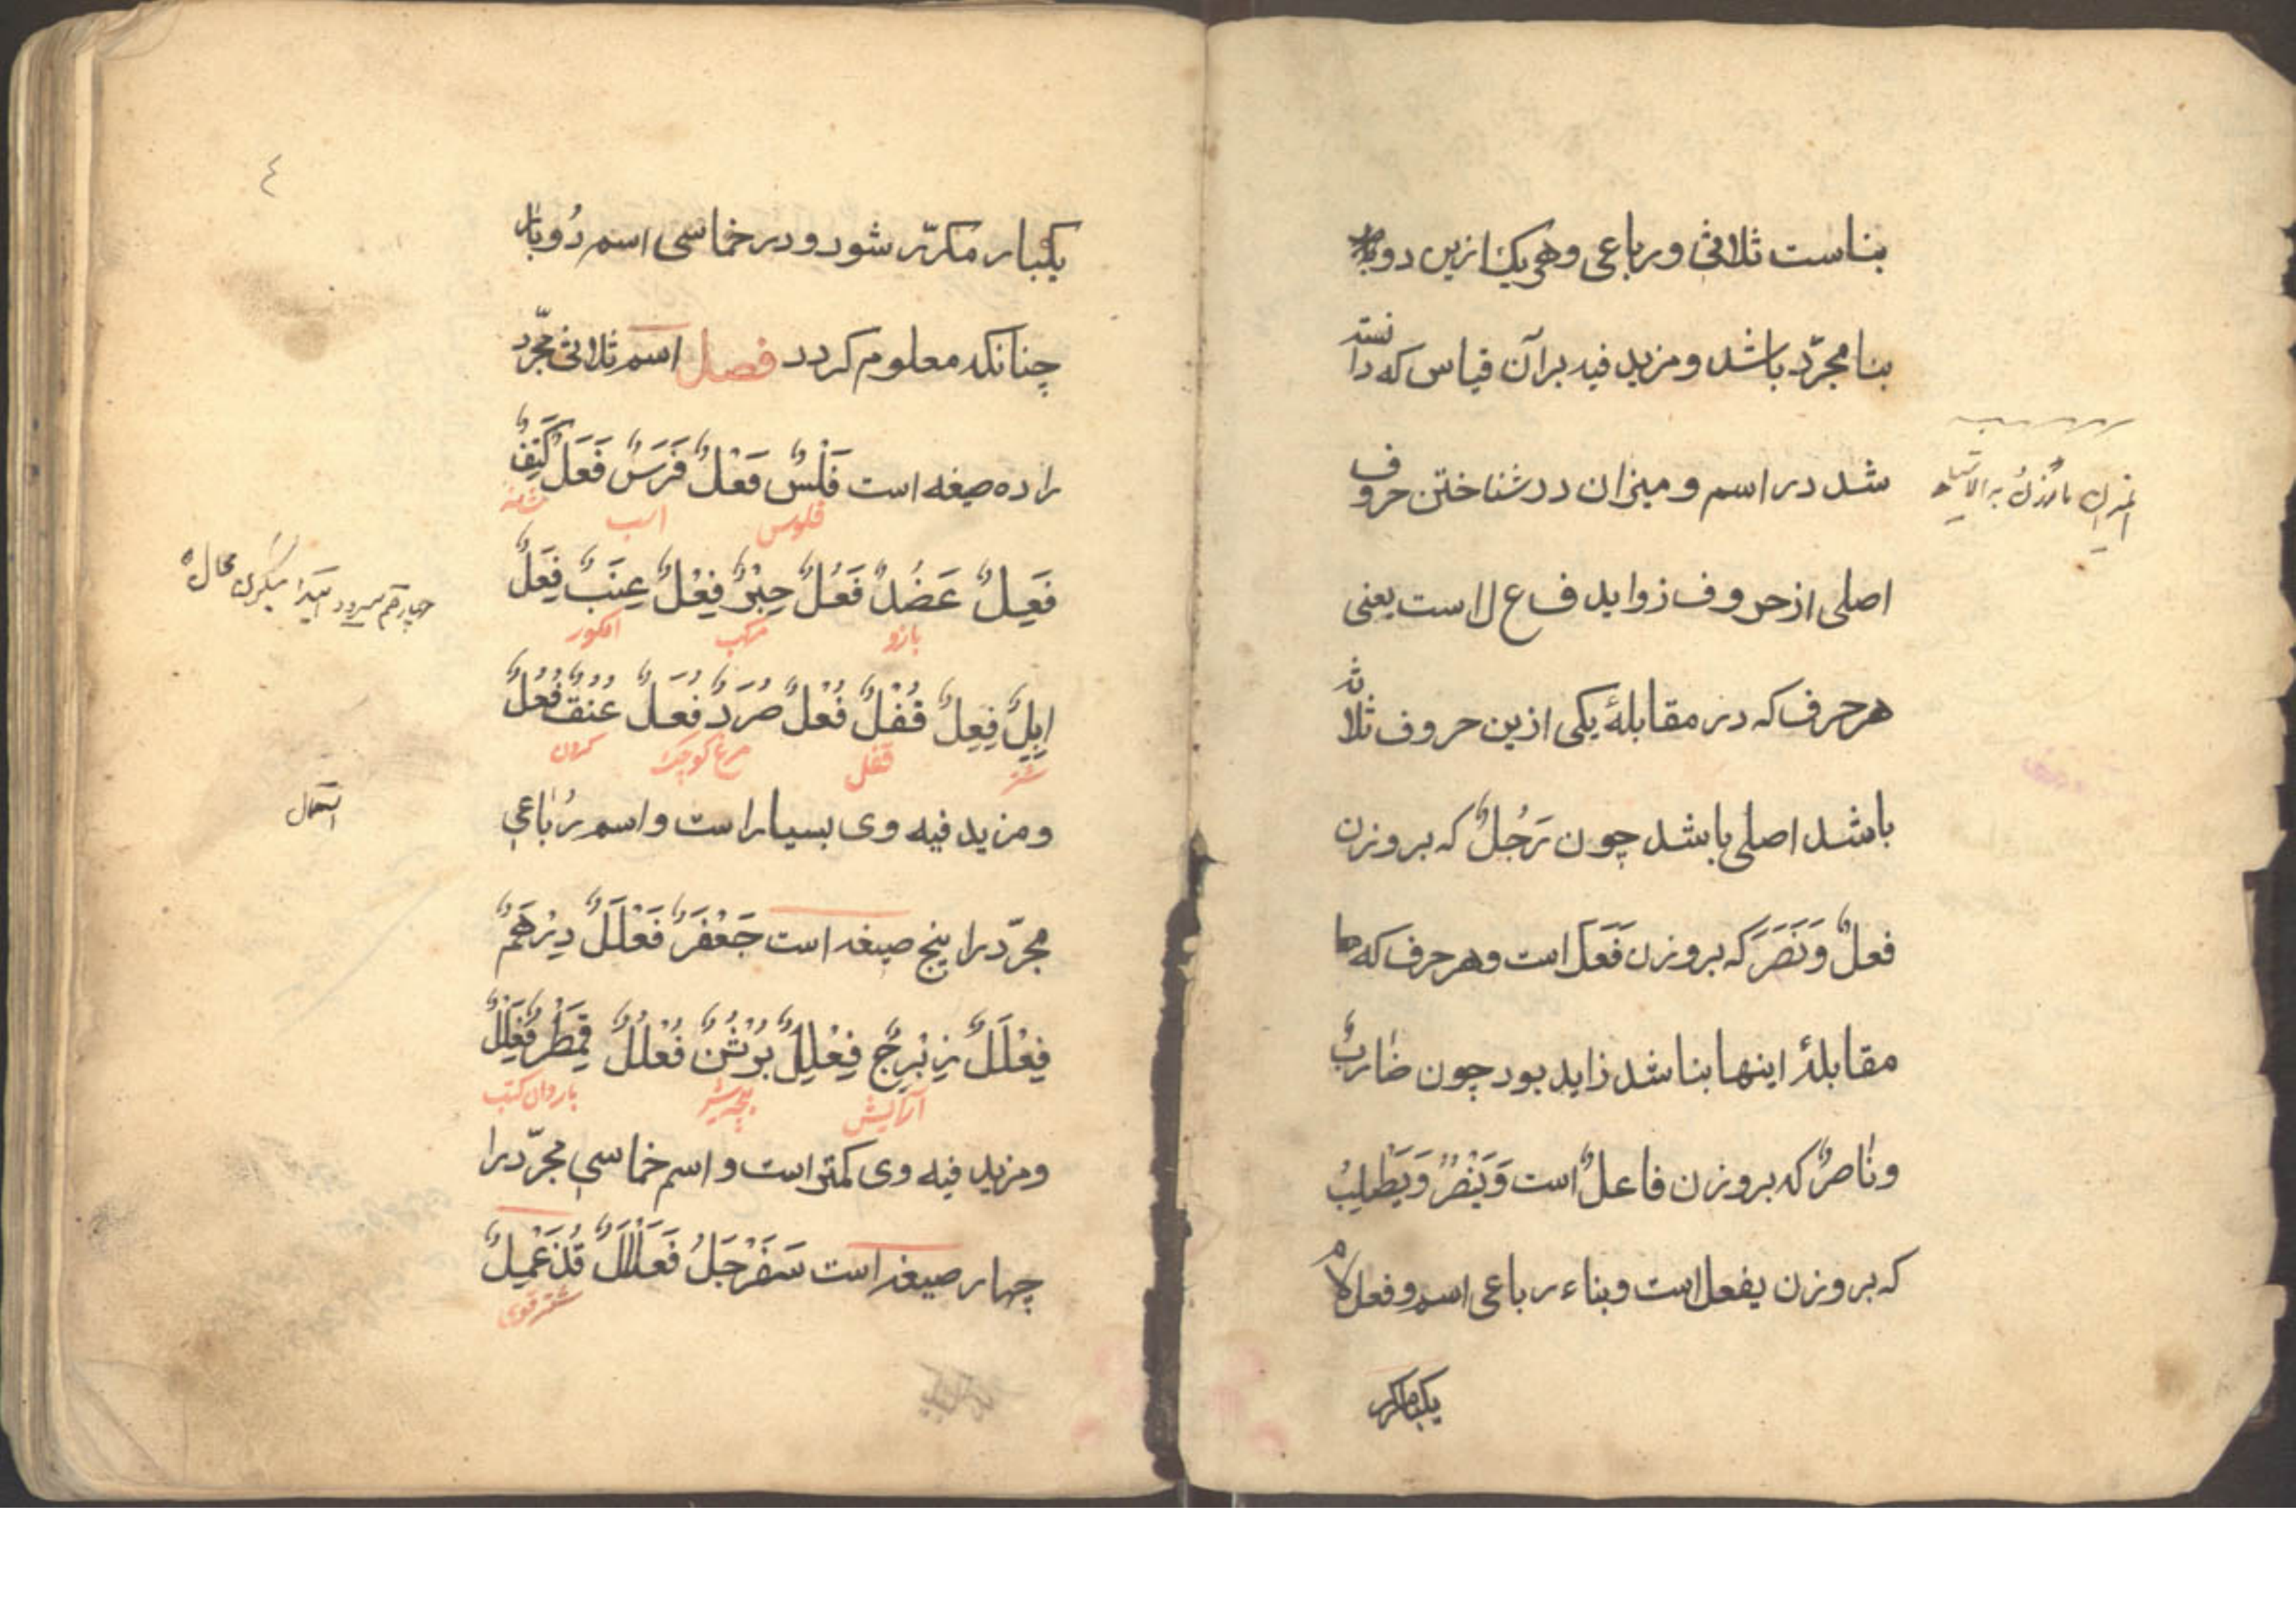 بناست ثلاثی ورباعی وهریک ازین دو
بنا مجرّد باشد ومزید فیه برآن قیاس که دانسته
شد در اسم ومیزان در شناختن حروف
اصلی از حروف زواید ف ع ل است یعنی
هر حرف که در مقابلهٔ یکی ازین حروف ثلاثه
باشد اصلی باشد چون رَجُلٌ که بروزن
فعلٌ وَنَصَرَ که بروزن فَعَلَ است وهر حرف که
مقابلهٔ اینها بناشد زاید بود چون ضاربٌ
وناصرٌ که بروزن فاعلٌ است وَیَنْصُرُ وَیَطْلِبُ
که بروزن یفعل است وبناء رباعی اسم وفعل لام
یکبار مکر
٤
یکبار مکرّر شود ودر خماسی اسم دُوبار
چنانکه معلوم کردد فصل اسم ثلاثی مجّرد
را ده صیغه است فَلْسٌ فَعْلٌ فَرَسٌ فَعَلٌ کَتِفٌ
فلوس اسب
فَعِلٌ عَضُدٌ فَعُلٌ حِبْرٌ فِعْلٌ عِنَبٌ فِعَلٌ
بازو مرکب انکور
اِبِلٌ فِعِلٌ قُفْلٌ فُعْلٌ صُرَدٌ فُعَلٌ عُنُقٌ فُعُلٌ
شتر قفل مرغ کوچک کردن
ومزید فیه وی بسیار است واسم رُباعی
مجرّد را پنج صیغه است جَعْفَرٌ فَعْلَلٌ دِرْهَمٌ
فِعْلَلٌ زِبْرِجٌ فِعْلِلٌ بُرْثُنٌ فُعْلُلٌ قِمَطْرٌ فِعَلْلٌ
آرایش پنجه شیر باردان کتب
ومزید فیه وی کمتر است واسم خماسی مجرّد را
چهار صیغه است سَفَرْجَلُ فَعَلْلَلٌ قُذَعْمِیلٌ
شتر قوی